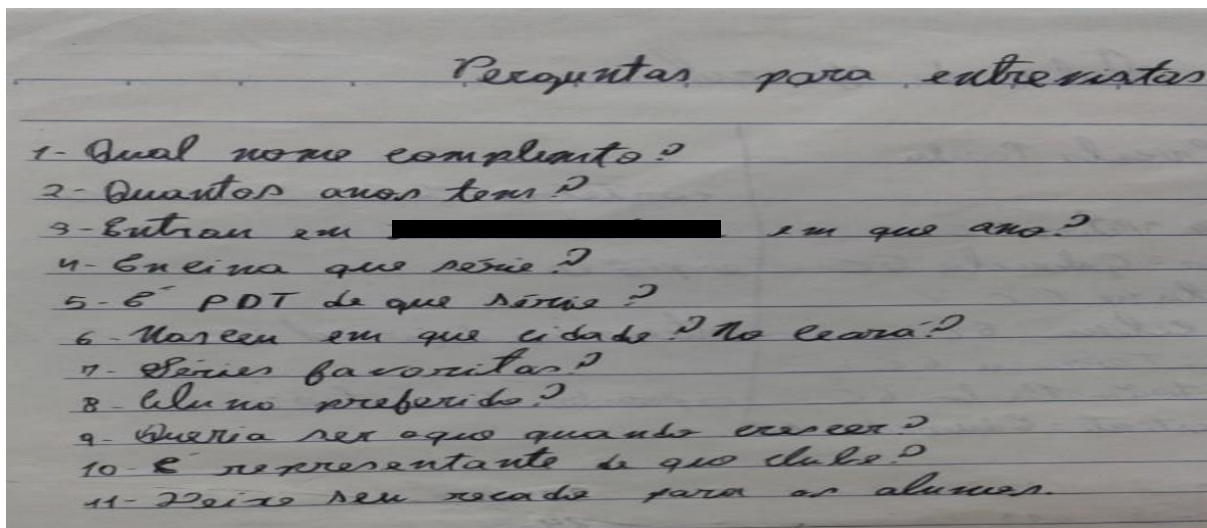 Perguntas para entrevistas
1- Qual nome complento?
2- Quantos anos tem?
3- Entrou em em que ano?
4- Encina que série?
5- É PDT de que série?
6- Nasceu em que cidade? No Ceará?
7- Séries favoritas?
8- Aluno preferido?
9- Queria ser oque quando crescer?
10- É representante de que clube?
11- Deixe seu recado para os alunos.